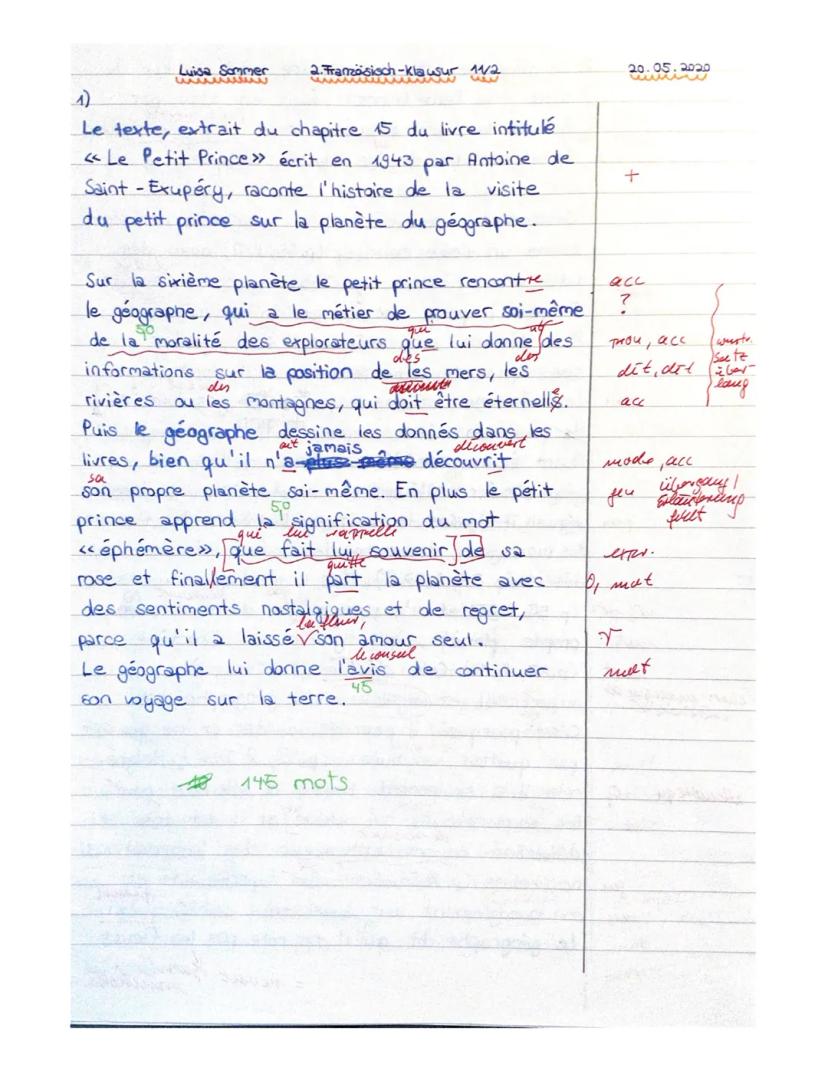 Luisa Sommer 2. Französisch-Klausur 11/2 20.05.2020
1)
Le texte, extrait du chapitre 15 du livre intitulé
<< Le Petit Prince >> écrit en 1943 par Antoine de
Saint-Exupéry, raconte l'histoire de la visite +
du petit prince sur la planète du géographe.
Sur la sixième planète le petit prince rencontre acc
le géographe, qui a le métier de prouver soi-même ?
50 qui
de la moralité des explorateurs que lui donne des pron, acc
des des
informations sur la position de les mers, les dét, dét
des
rivières ou les montagnes, qui doit être éternells. acc
Puis le géographe dessine les donnés dans les
ait jamais découvert
livres, bien qu'il n'a plus même découvrit mode, acc
sa
son propre planète soi-même. En plus le pétit
50
prince apprend la signification du mot
qui lui rappelle
<< éphémère >>, que fait lui souvenir de sa
quitte
rose et finallement il part la planète avec O, mot
des sentiments nostalgiques et de regret,
la fleur,
parce qu'il a laissé son amour seul. √
le conseil
Le géographe lui donne l'avis de continuer mot
45
son voyage sur la terre.
145 mots